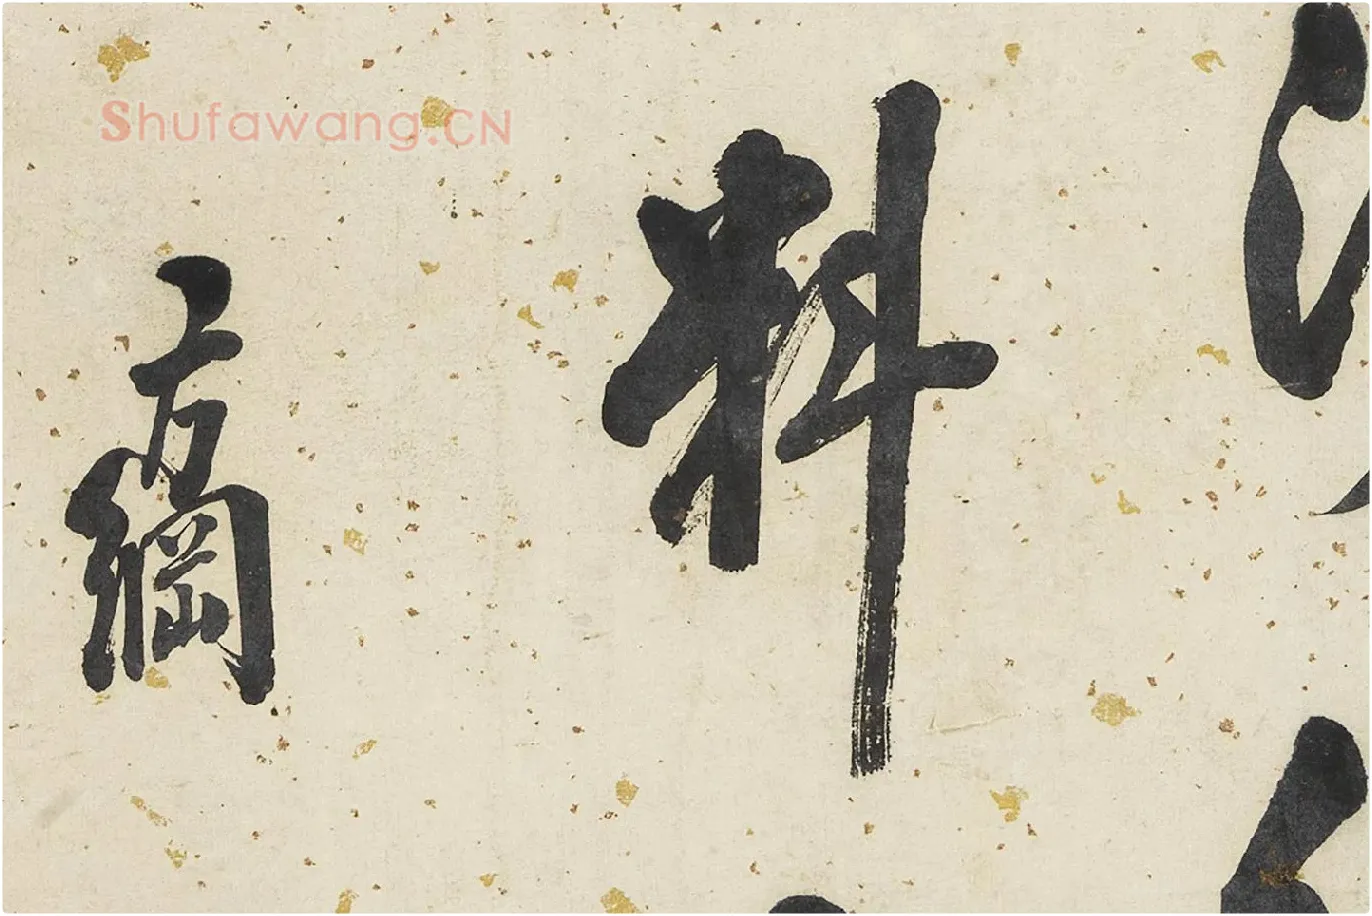 Shufawang.CN
料
方綱